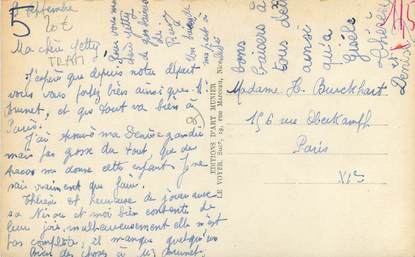 5 septembre
20€
Ma chère Jetty
J'espère que depuis notre départ
vous vous portez bien ainsi que
Brunet, et que tout va bien à
Paris.
J'ai retrouvé ma Denise grandie
mais pas grosse du tout, que de
tracas me donne cette enfant. Je ne
sais vraiment que faire.
Thérèse est heureuse de jouer avec
sa et moi bien contente de
leur joie, malheureusement elle n'est
pas complète, il manque quelqu'un
Bien des choses à Mr Brunet.
bons
baisers à
tous deux
ainsi
qu'à
Gisèle
Thérèse
et
Denise
EDITIONS D'ART MUNIER
LE VOYER, Succr, 19, rue Marceau, Nan
Madame H. Burckhart
156 rue Oberkampf
Paris
XIe